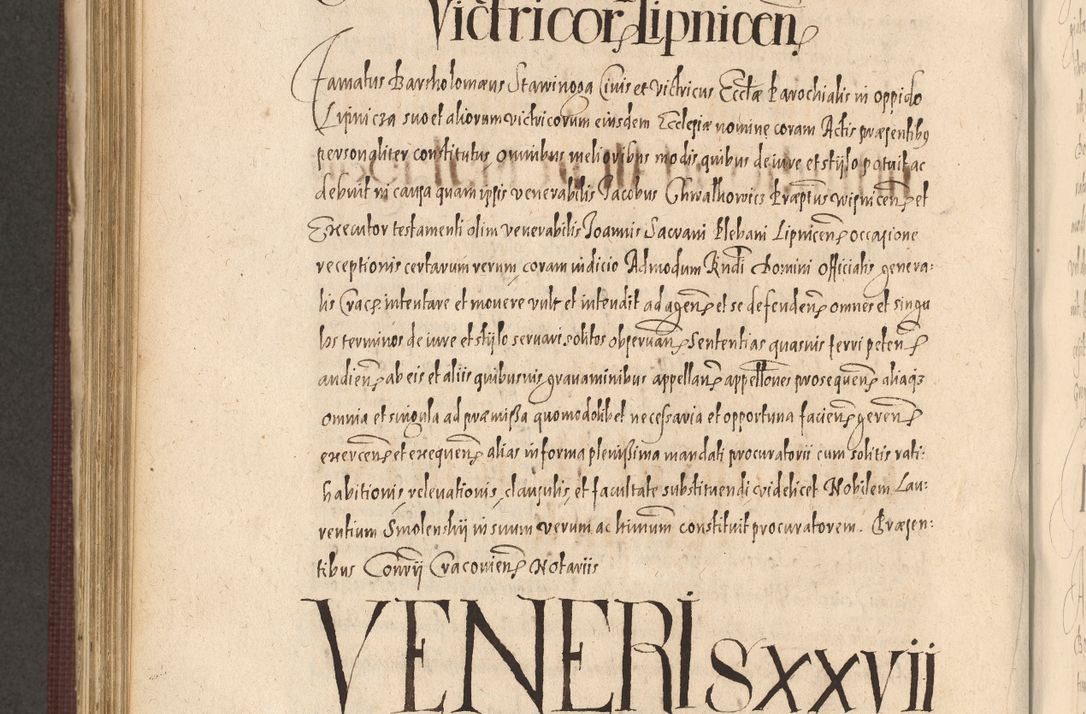 Victricor Lipnicen
Famatus Bartholomæus Stawinoga Civis et victricus Eccłæ Parochialis in oppido
Lipnicza suo et aliorum victricorum eiusdem Ecclesiæ nomine coram Actis præsentibus
personaliter constitutus omnibus melioribus modis quibus de iure et stijlo potuit ac
debuit in causa quam ipsis venerabilis Jacobus Chwalkowicz Præptus wisnicen et
Executor testamenti olim venerabilis Joannis Sacrani Plebani Lipnicen occasione
receptionis certarum rerum coram iudicio Admodum Rndi Domini Officialis genera:
lis Crac intentare et movere vult et intendit ad agen et se defenden omnes et singu
los terminos de iure et stijlo servari solitos observan Sententias quasvis ferri peten
audien ab eis et aliis quibusvis gravaminibus appellan appellones prosequen aliaq3
omnia et singula ad præmissa quomodolibet necessaria et opportuna facien geren
exercen et exequen alias in forma plenissima mandati procuratorii cum solitis rati:
habitionis, relevationis, clausulis, et facultate substituendi videlicet Nobilem Lau:
rentium Smolenskij in suum verum ac ltimum constituit procuratorem. Præsen:
tibus Conrij Cracovien Notariis
VENERIS XXVII